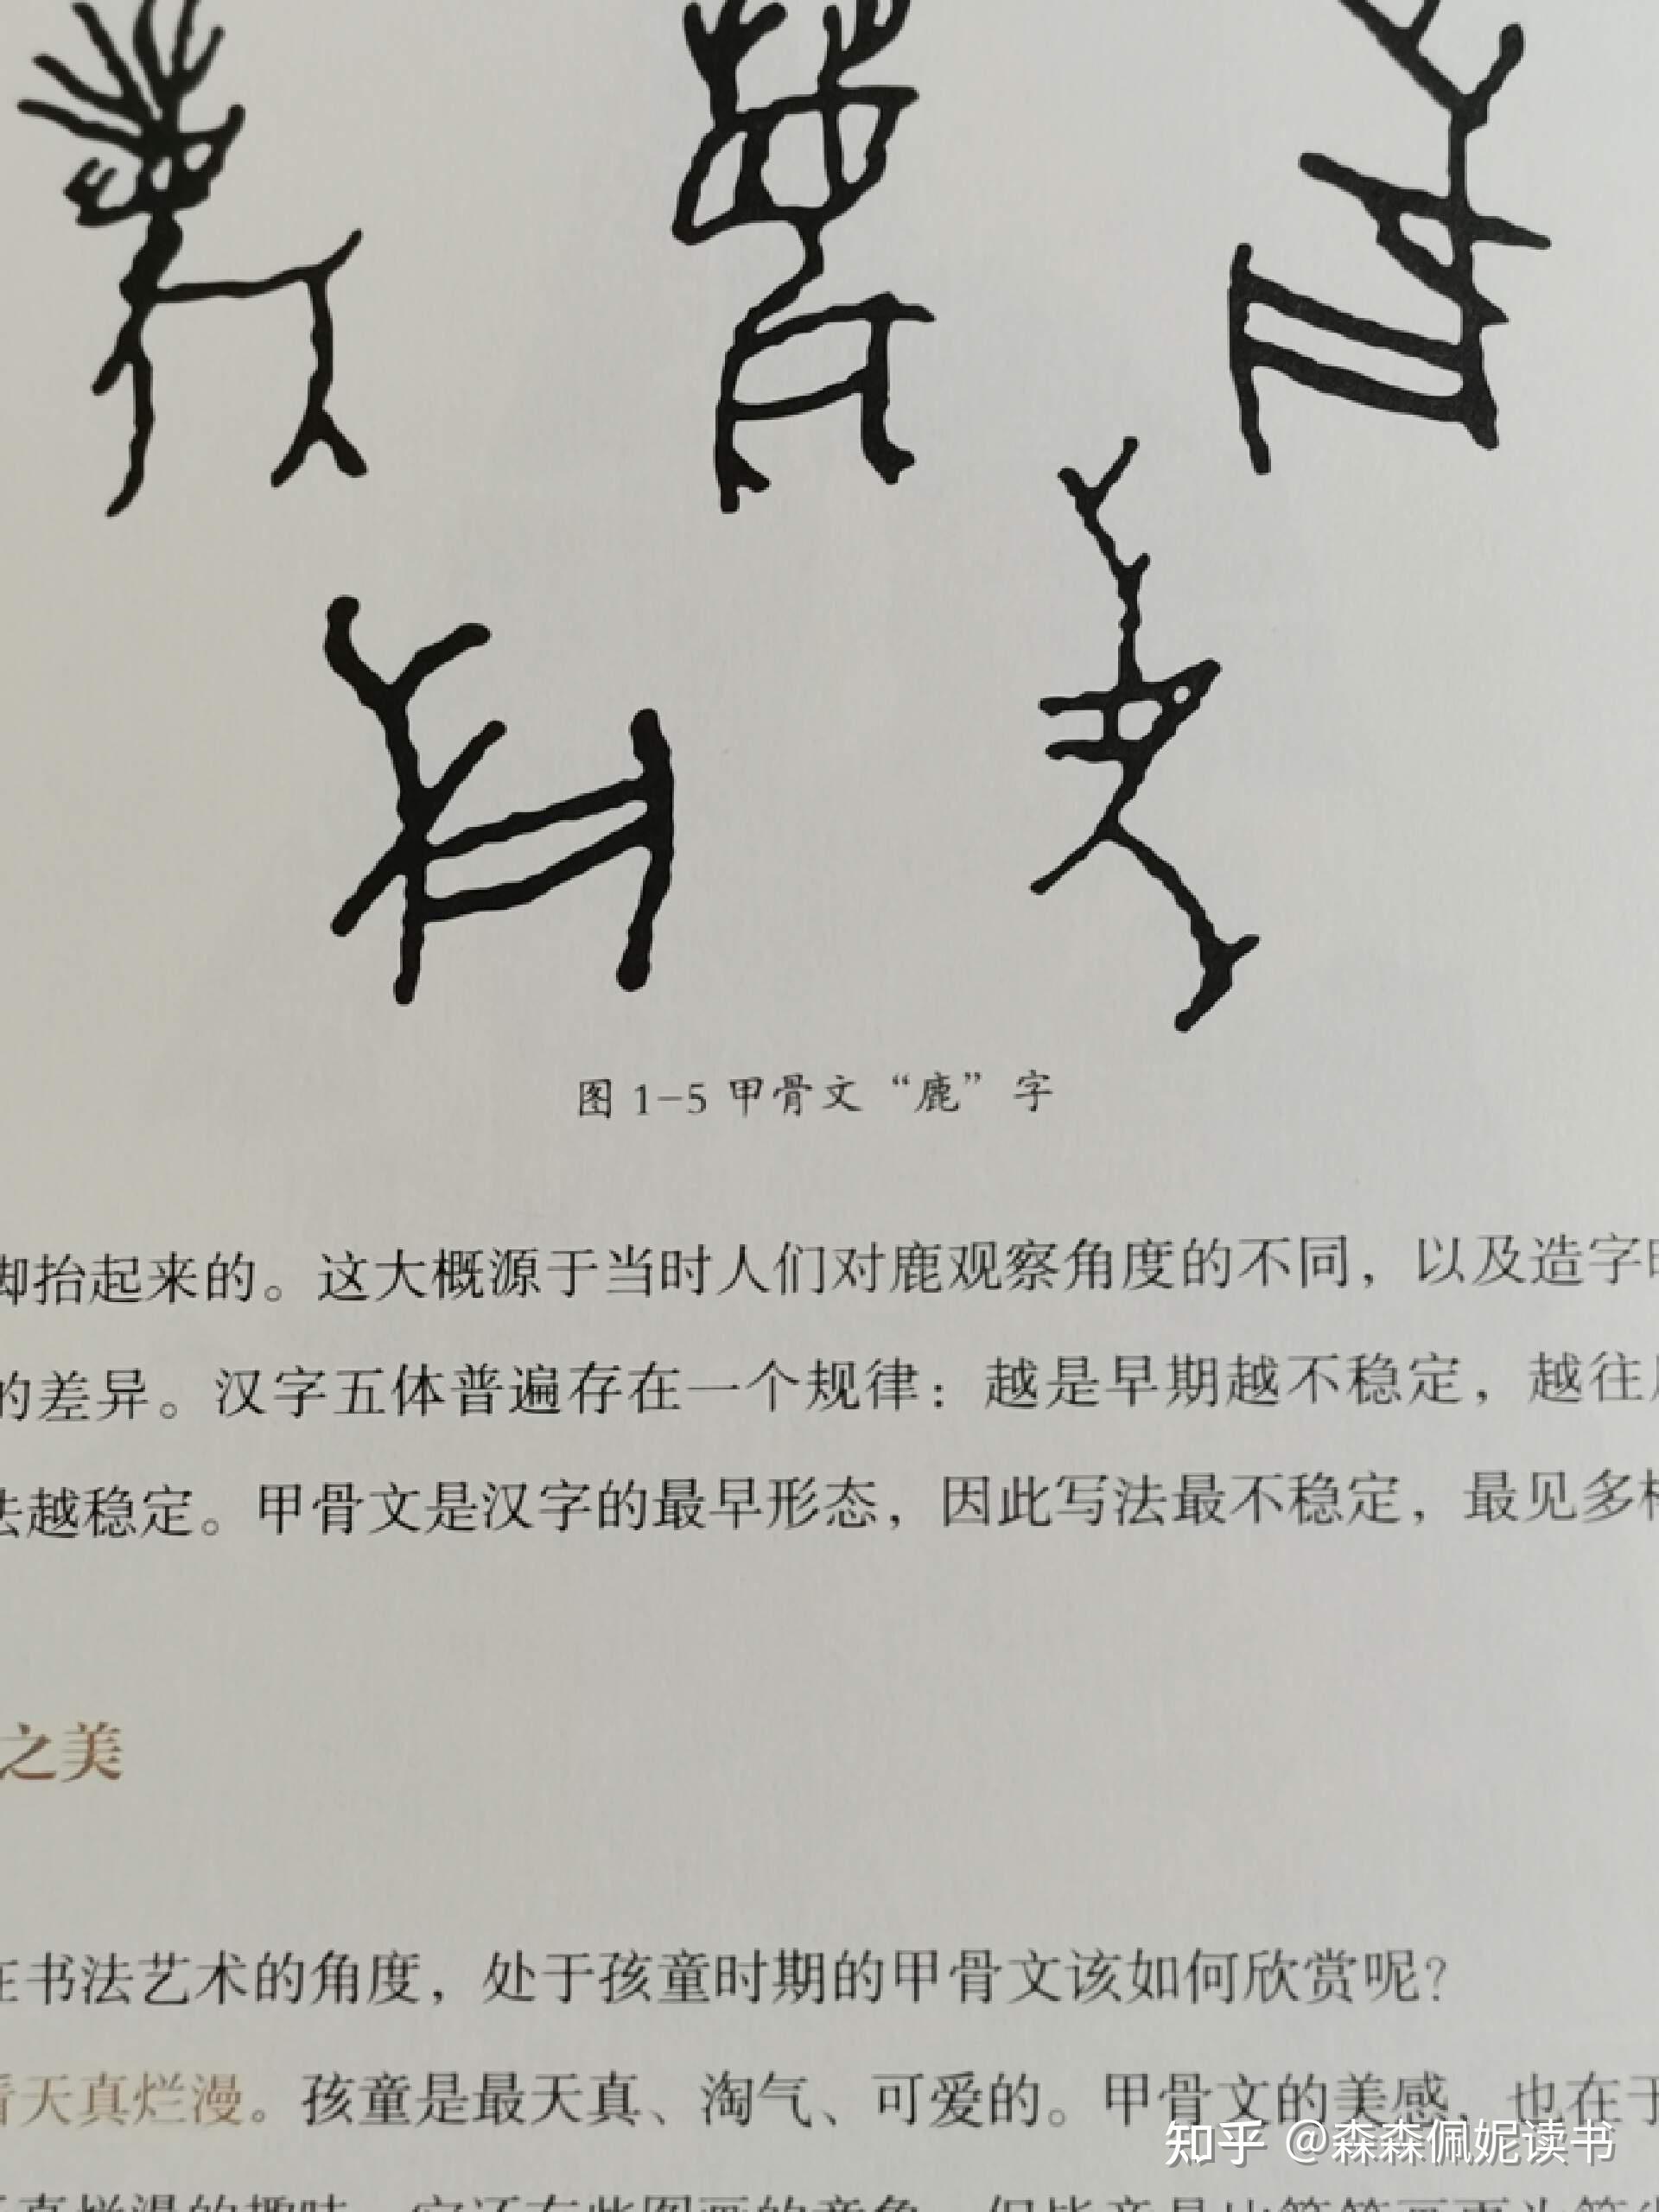 图 1-5 甲骨文“鹿”字
脚抬起来的。这大概源于当时人们对鹿观察角度的不同，以及造字时
的差异。汉字五体普遍存在一个规律：越是早期越不稳定，越往后
法越稳定。甲骨文是汉字的最早形态，因此写法最不稳定，最见多样
之美
在书法艺术的角度，处于孩童时期的甲骨文该如何欣赏呢？
看天真烂漫。孩童是最天真、淘气、可爱的。甲骨文的美感，也在于
知乎 @森森佩妮读书